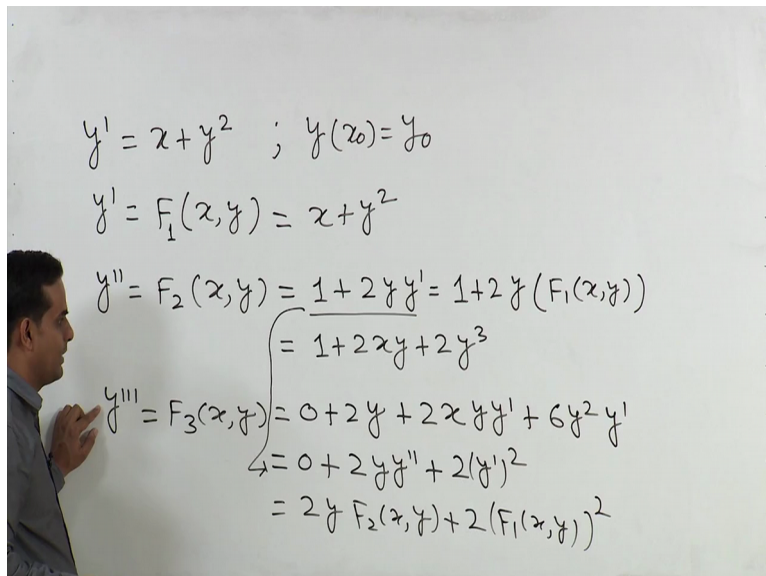 y' = x + y² ; y(x₀) = y₀
y' = F₁(x,y) = x + y²
y'' = F₂(x,y) = 1 + 2yy' = 1 + 2y(F₁(x,y))
= 1 + 2xy + 2y³
y''' = F₃(x,y) = 0 + 2y + 2xyy' + 6y²y'
= 0 + 2yy'' + 2(y')²
= 2y F₂(x,y) + 2(F₁(x,y))²